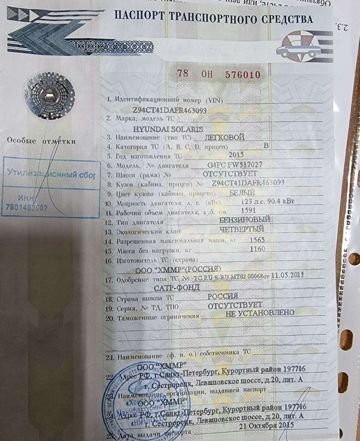 ПАСПОРТ ТРАНСПОРТНОГО СРЕДСТВА
78 ОН 576010
Особые отметки
Утилизационный сбор
ИНН
1. Идентификационный номер (VIN) Z94CT41DAFR463093
2. Марка, модель ТС HYUNDAI SOLARIS
3. Наименование (тип ТС) ЛЕГКОВОЙ
4. Категория ТС (А, В, С, D, прицеп) B
5. Год изготовления ТС 2015
6. Модель, № двигателя G4FC FW517027
7. Шасси (рама) № ОТСУТСТВУЕТ
8. Кузов (кабина, прицеп) № Z94CT41DAFR463093
9. Цвет кузова (кабины, прицепа) БЕЛЫЙ
10. Мощность двигателя, л. с. (кВт) 123 л.с. 90.4 кВт
11. Рабочий объем двигателя, куб. см 1591
12. Тип двигателя БЕНЗИНОВЫЙ
13. Экологический класс ЧЕТВЕРТЫЙ
14. Разрешенная максимальная масса, кг 1565
15. Масса без нагрузки, кг 1160
16. Изготовитель ТС (страна)
ООО "ХММР"(РОССИЯ)
17. Одобрение типа ТС № от 11.03.2015
САТР-ФОНД
18. Страна вывоза ТС РОССИЯ
19. Серия, № ТД, ТПО ОТСУТСТВУЕТ
20. Таможенные ограничения НЕ УСТАНОВЛЕНО
21. Наименование (ф. и. о.) собственника ТС
ООО "ХММР"
22. Адрес РФ, г.Санкт-Петербург, Курортный район 197706
г. Сестрорецк, Левашовское шоссе, д.20, лит. А
23. Наименование организации, выдавшей паспорт
ООО "ХММР"
24. Адрес РФ, г.Санкт-Петербург, Курортный район 197706
г. Сестрорецк, Левашовское шоссе, д.20, лит. А
25. Дата выдачи паспорта 21 Октября 2015